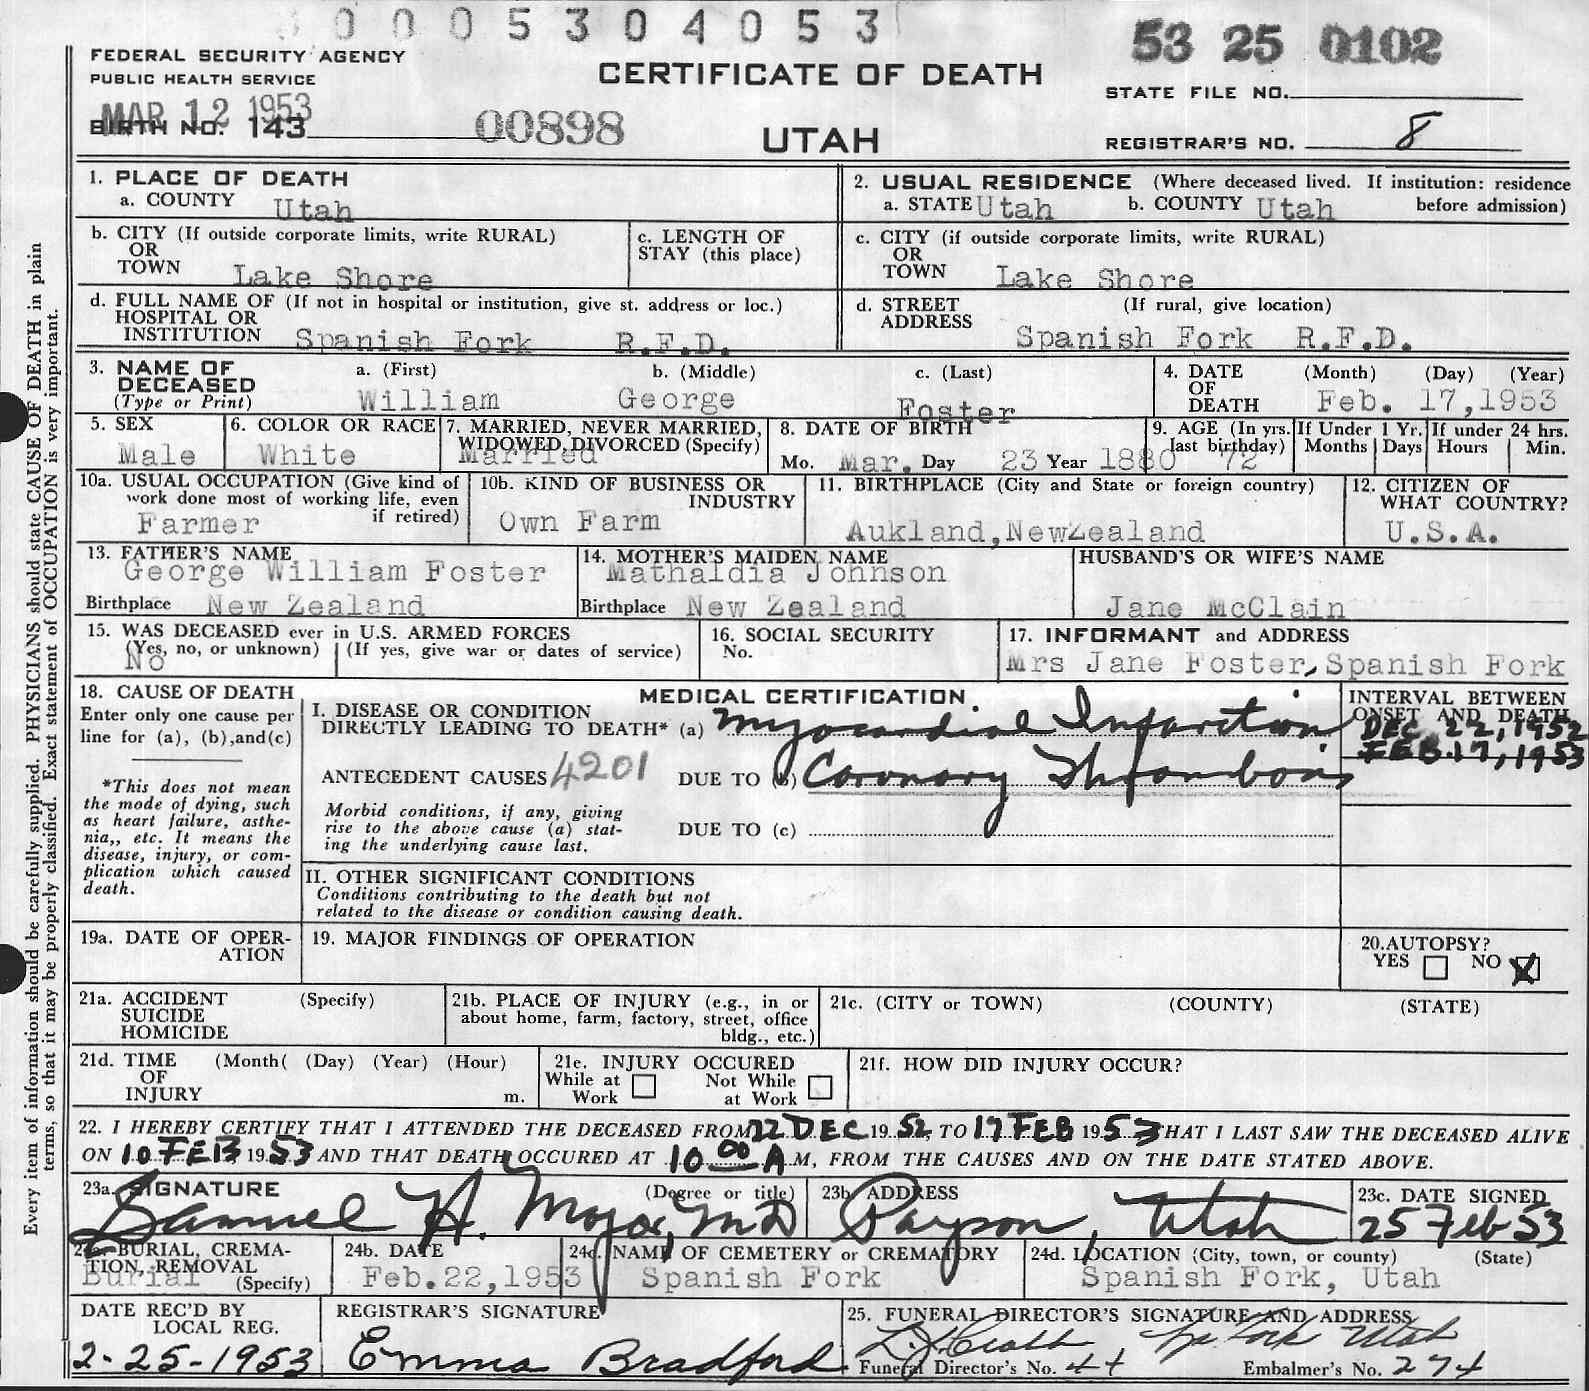 0 0 0 5 3 0 4 0 5 3
53 25 0102
FEDERAL SECURITY AGENCY
PUBLIC HEALTH SERVICE
CERTIFICATE OF DEATH
STATE FILE NO.
MAR 12 1953
BIRTH NO. 143
00898
UTAH
REGISTRAR'S NO. 8
Every item of information should be carefully supplied. PHYSICIANS should state CAUSE OF DEATH in plain
terms, so that it may be properly classified. Exact statement of OCCUPATION is very important.
1. PLACE OF DEATH
a. COUNTY Utah
2. USUAL RESIDENCE (Where deceased lived. If institution: residence
a. STATE Utah b. COUNTY Utah before admission)
b. CITY (If outside corporate limits, write RURAL)
OR
TOWN Lake Shore
c. LENGTH OF
STAY (this place)
c. CITY (if outside corporate limits, write RURAL)
OR
TOWN Lake Shore
d. FULL NAME OF (If not in hospital or institution, give st. address or loc.)
HOSPITAL OR
INSTITUTION Spanish Fork R.F.D.
d. STREET (If rural, give location)
ADDRESS Spanish Fork R.F.D.
3. NAME OF a. (First) b. (Middle) c. (Last)
DECEASED
(Type or Print) William George Foster
4. DATE (Month) (Day) (Year)
OF
DEATH Feb. 17,1953
5. SEX
Male
6. COLOR OR RACE
White
7. MARRIED, NEVER MARRIED,
WIDOWED, DIVORCED (Specify)
Married
8. DATE OF BIRTH
Mo. Mar. Day 23 Year 1880
9. AGE (In yrs.
last birthday)
72
If Under 1 Yr.
Months Days
If under 24 hrs.
Hours Min.
10a. USUAL OCCUPATION (Give kind of
work done most of working life, even
if retired)
Farmer
10b. KIND OF BUSINESS OR
INDUSTRY
Own Farm
11. BIRTHPLACE (City and State or foreign country)
Aukland,NewZealand
12. CITIZEN OF
WHAT COUNTRY?
U.S.A.
13. FATHER'S NAME
George William Foster
Birthplace New Zealand
14. MOTHER'S MAIDEN NAME
Mathaldia Johnson
Birthplace New Zealand
HUSBAND'S OR WIFE'S NAME
Jane McClain
15. WAS DECEASED ever in U.S. ARMED FORCES
(Yes, no, or unknown) (If yes, give war or dates of service)
No
16. SOCIAL SECURITY
No.
17. INFORMANT and ADDRESS
Mrs Jane Foster, Spanish Fork
18. CAUSE OF DEATH
Enter only one cause per
line for (a), (b),and(c)
*This does not mean
the mode of dying, such
as heart failure, asthe-
nia,, etc. It means the
disease, injury, or com-
plication which caused
death.
MEDICAL CERTIFICATION.
I. DISEASE OR CONDITION
DIRECTLY LEADING TO DEATH* (a) Myocardial Infarction
ANTECEDENT CAUSES 4201 DUE TO (b) Coronary Thrombosis
Morbid conditions, if any, giving
rise to the above cause (a) stat-
ing the underlying cause last.
DUE TO (c)
INTERVAL BETWEEN
ONSET AND DEATH
DEC 22, 1952
FEB. 17, 1953
II. OTHER SIGNIFICANT CONDITIONS
Conditions contributing to the death but not
related to the disease or condition causing death.
19a. DATE OF OPER-
ATION
19. MAJOR FINDINGS OF OPERATION
20.AUTOPSY?
YES NO X
21a. ACCIDENT (Specify)
SUICIDE
HOMICIDE
21b. PLACE OF INJURY (e.g., in or
about home, farm, factory, street, office
bldg., etc.)
21c. (CITY or TOWN) (COUNTY) (STATE)
21d. TIME (Month( (Day) (Year) (Hour)
OF
INJURY m.
21e. INJURY OCCURED
While at Not While
Work at Work
21f. HOW DID INJURY OCCUR?
22. I HEREBY CERTIFY THAT I ATTENDED THE DECEASED FROM 22 DEC 19 52, TO 17 FEB 19 53 THAT I LAST SAW THE DECEASED ALIVE
ON 10 FEB, 19 53 AND THAT DEATH OCCURED AT 10 00 A M, FROM THE CAUSES AND ON THE DATE STATED ABOVE.
23a. SIGNATURE (Degree or title)
Samuel H. Major, MD
23b. ADDRESS
Payson, Utah
23c. DATE SIGNED
25 Feb 53
BURIAL, CREMA-
TION, REMOVAL
Burial (Specify)
24b. DATE
Feb.22,1953
24c. NAME OF CEMETERY or CREMATORY
Spanish Fork
24d. LOCATION (City, town, or county) (State)
Spanish Fork, Utah
DATE REC'D BY
LOCAL REG.
2-25-1953
REGISTRAR'S SIGNATURE
Emma Bradford
25. FUNERAL DIRECTOR'S SIGNATURE AND ADDRESS
Fork Utah
Funeral Director's No. 44 Embalmer's No. 274